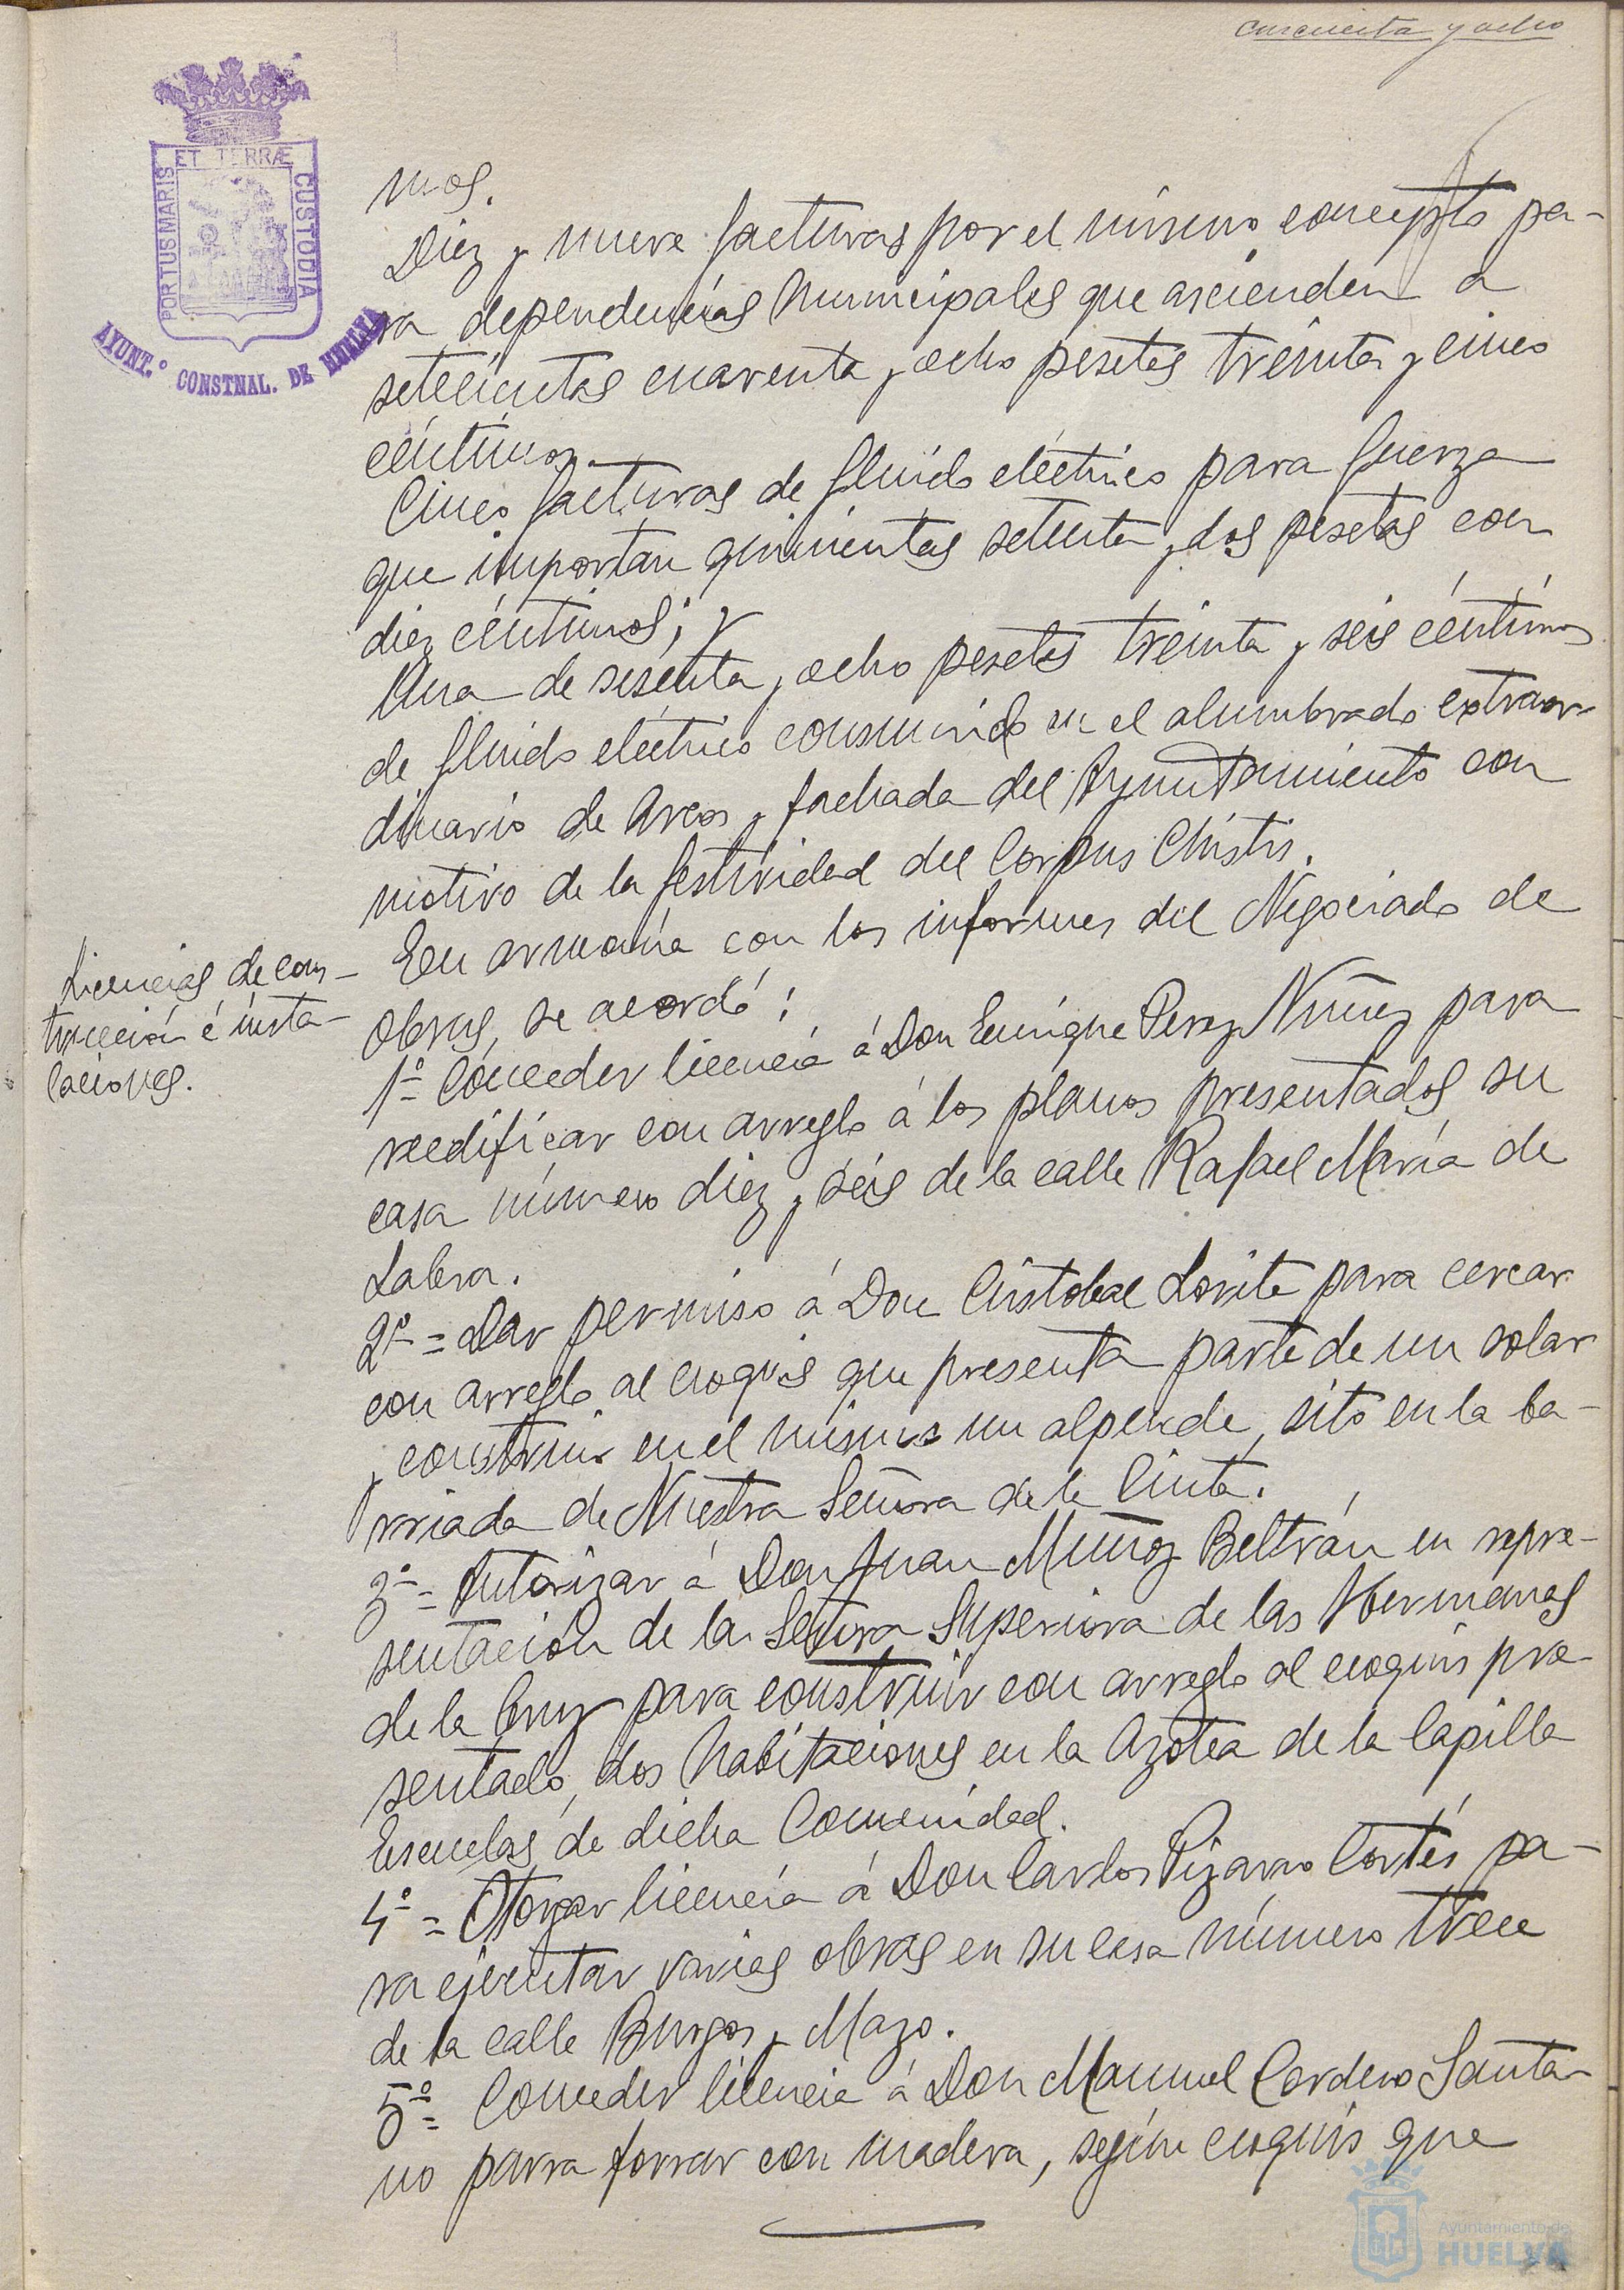 cincuenta y ocho
PORTUS MARIS ET TERRÆ CUSTODIA
AYUNT.º CONSTNAL. DE HUELVA
mos.
Diez y nueve facturas por el mismo concepto pa-
ra dependencias Municipales que ascienden a
setecientas cuarenta y ocho pesetas treinta y cinco
céntimos.
Cinco facturas de fluido eléctrico para fuerza
que importan quinientas setenta y dos pesetas con
diez céntimos; y
Una de sesenta y ocho pesetas treinta y seis céntimos
de fluido eléctrico consumido en el alumbrado extraor-
dinario de Arcos y fachada del Ayuntamiento con
motivo de la festividad del Corpus Christis.
Licencias de cons-
trucción é insta-
laciones.
En armonía con los informes del Negociado de
Obras, se acordó:
1º Conceder licencia á Don Enrique Perez Nuñez para
reedificar con arreglo á los planos presentados su
casa número diez y seis de la calle Rafael María de
Labra.
2º = Dar permiso á Don Cristobal Lorite para cercar
con arreglo al croquis que presenta parte de un solar
y construir en el mismo un alpende, sito en la ba-
rriada de Nuestra Señora de la Cinta.
3º = Autorizar á Don Juan Muñoz Beltrán en repre-
sentación de la Señora Superiora de las Hermanas
de la Cruz para construir con arreglo al croquis pre-
sentado, dos habitaciones en la Azotea de la Capilla
Escuelas de dicha Comunidad.
4º = Otorgar licencia á Don Carlos Pizarro Cortés pa-
ra ejecutar varias obras en su casa número trece
de la calle Burgos y Mazo.
5º = Conceder licencia á Don Manuel Cordero Santa-
no parra forrar con madera, según croquis que
Ayuntamiento de
HUELVA